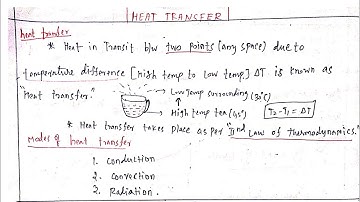 HEAT TRANSFER
heat transfer
* Heat in Transit b/w two points (any space) due to
temperature difference [High temp to low temp] ΔT is known as
"Heat transfer."
→ Low Temp surrounding (30°C)
→ High temp tea (45°)
T2 - T1 = ΔT
* Heat transfer takes place as per "IInd Law of Thermodynamics."
Modes of heat transfer
1. Conduction
2. Convection
3. Radiation.